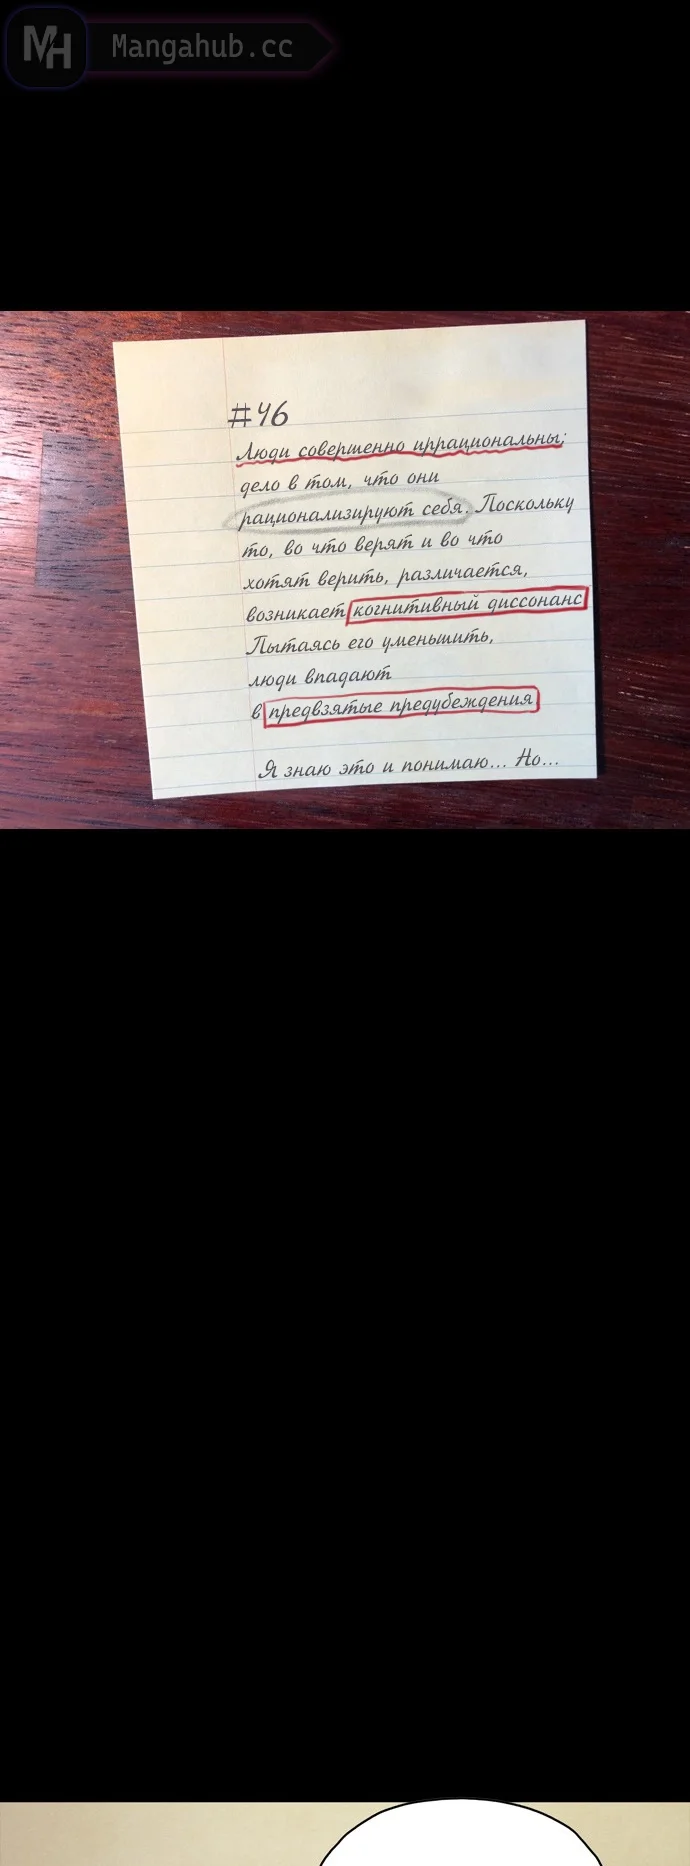 MH Mangahub.cc
#46
Люди совершенно иррациональны;
дело в том, что они
рационализируют себя. Поскольку
то, во что верят и во что
хотят верить, различается,
возникает когнитивный диссонанс
Пытаясь его уменьшить,
люди впадают
в предвзятые предубеждения
Я знаю это и понимаю... Но...